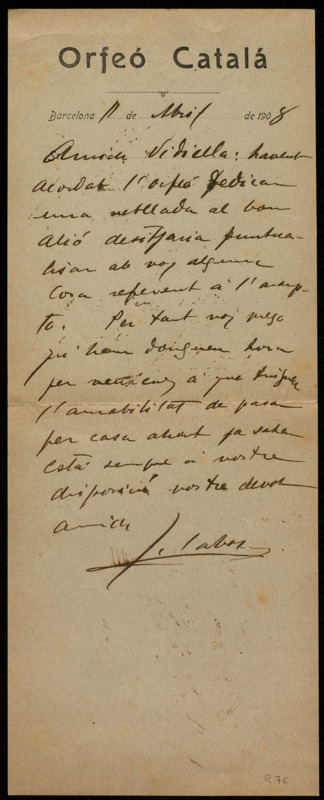 Orfeó Catalá
Barcelona 11 de Abril de 1908
Amich Vidiella: havent
acordat l'orfeó dedicar
una vetllada al bon
Alió desitjaria puntua-
lisar ab voy alguna
cosa referent a l'assump-
to. Per tant voy prego
que hem donguen hora
per a que tingueu
l'amabilitat de pasar
per casa ahont ja saben
està sempre a vostre
disposició vostre devot
amich
J. Cabot
R.76